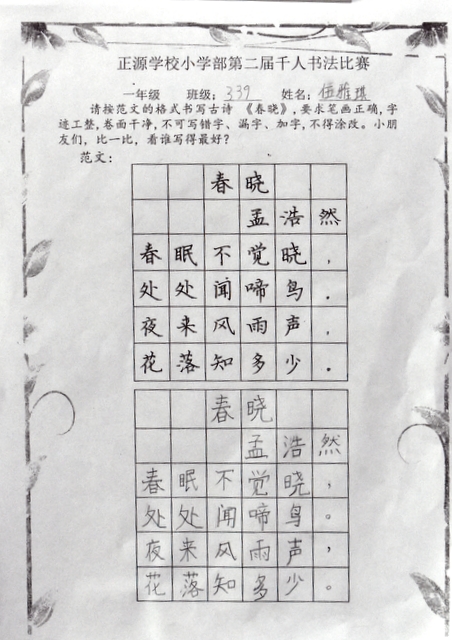 正源学校小学部第二届千人书法比赛
一年级 班级：339 姓名：伍雅琪
请按范文的格式书写古诗《春晓》，要求笔画正确，字
迹工整，卷面干净，不可写错字、漏字、加字，不得涂改。小朋
友们，比一比，看谁写得最好？
范文：
春晓
孟浩然
春眠不觉晓，
处处闻啼鸟．
夜来风雨声，
花落知多少．
春晓
孟浩然
春眠不觉晓，
处处闻啼鸟。
夜来风雨声，
花落知多少。